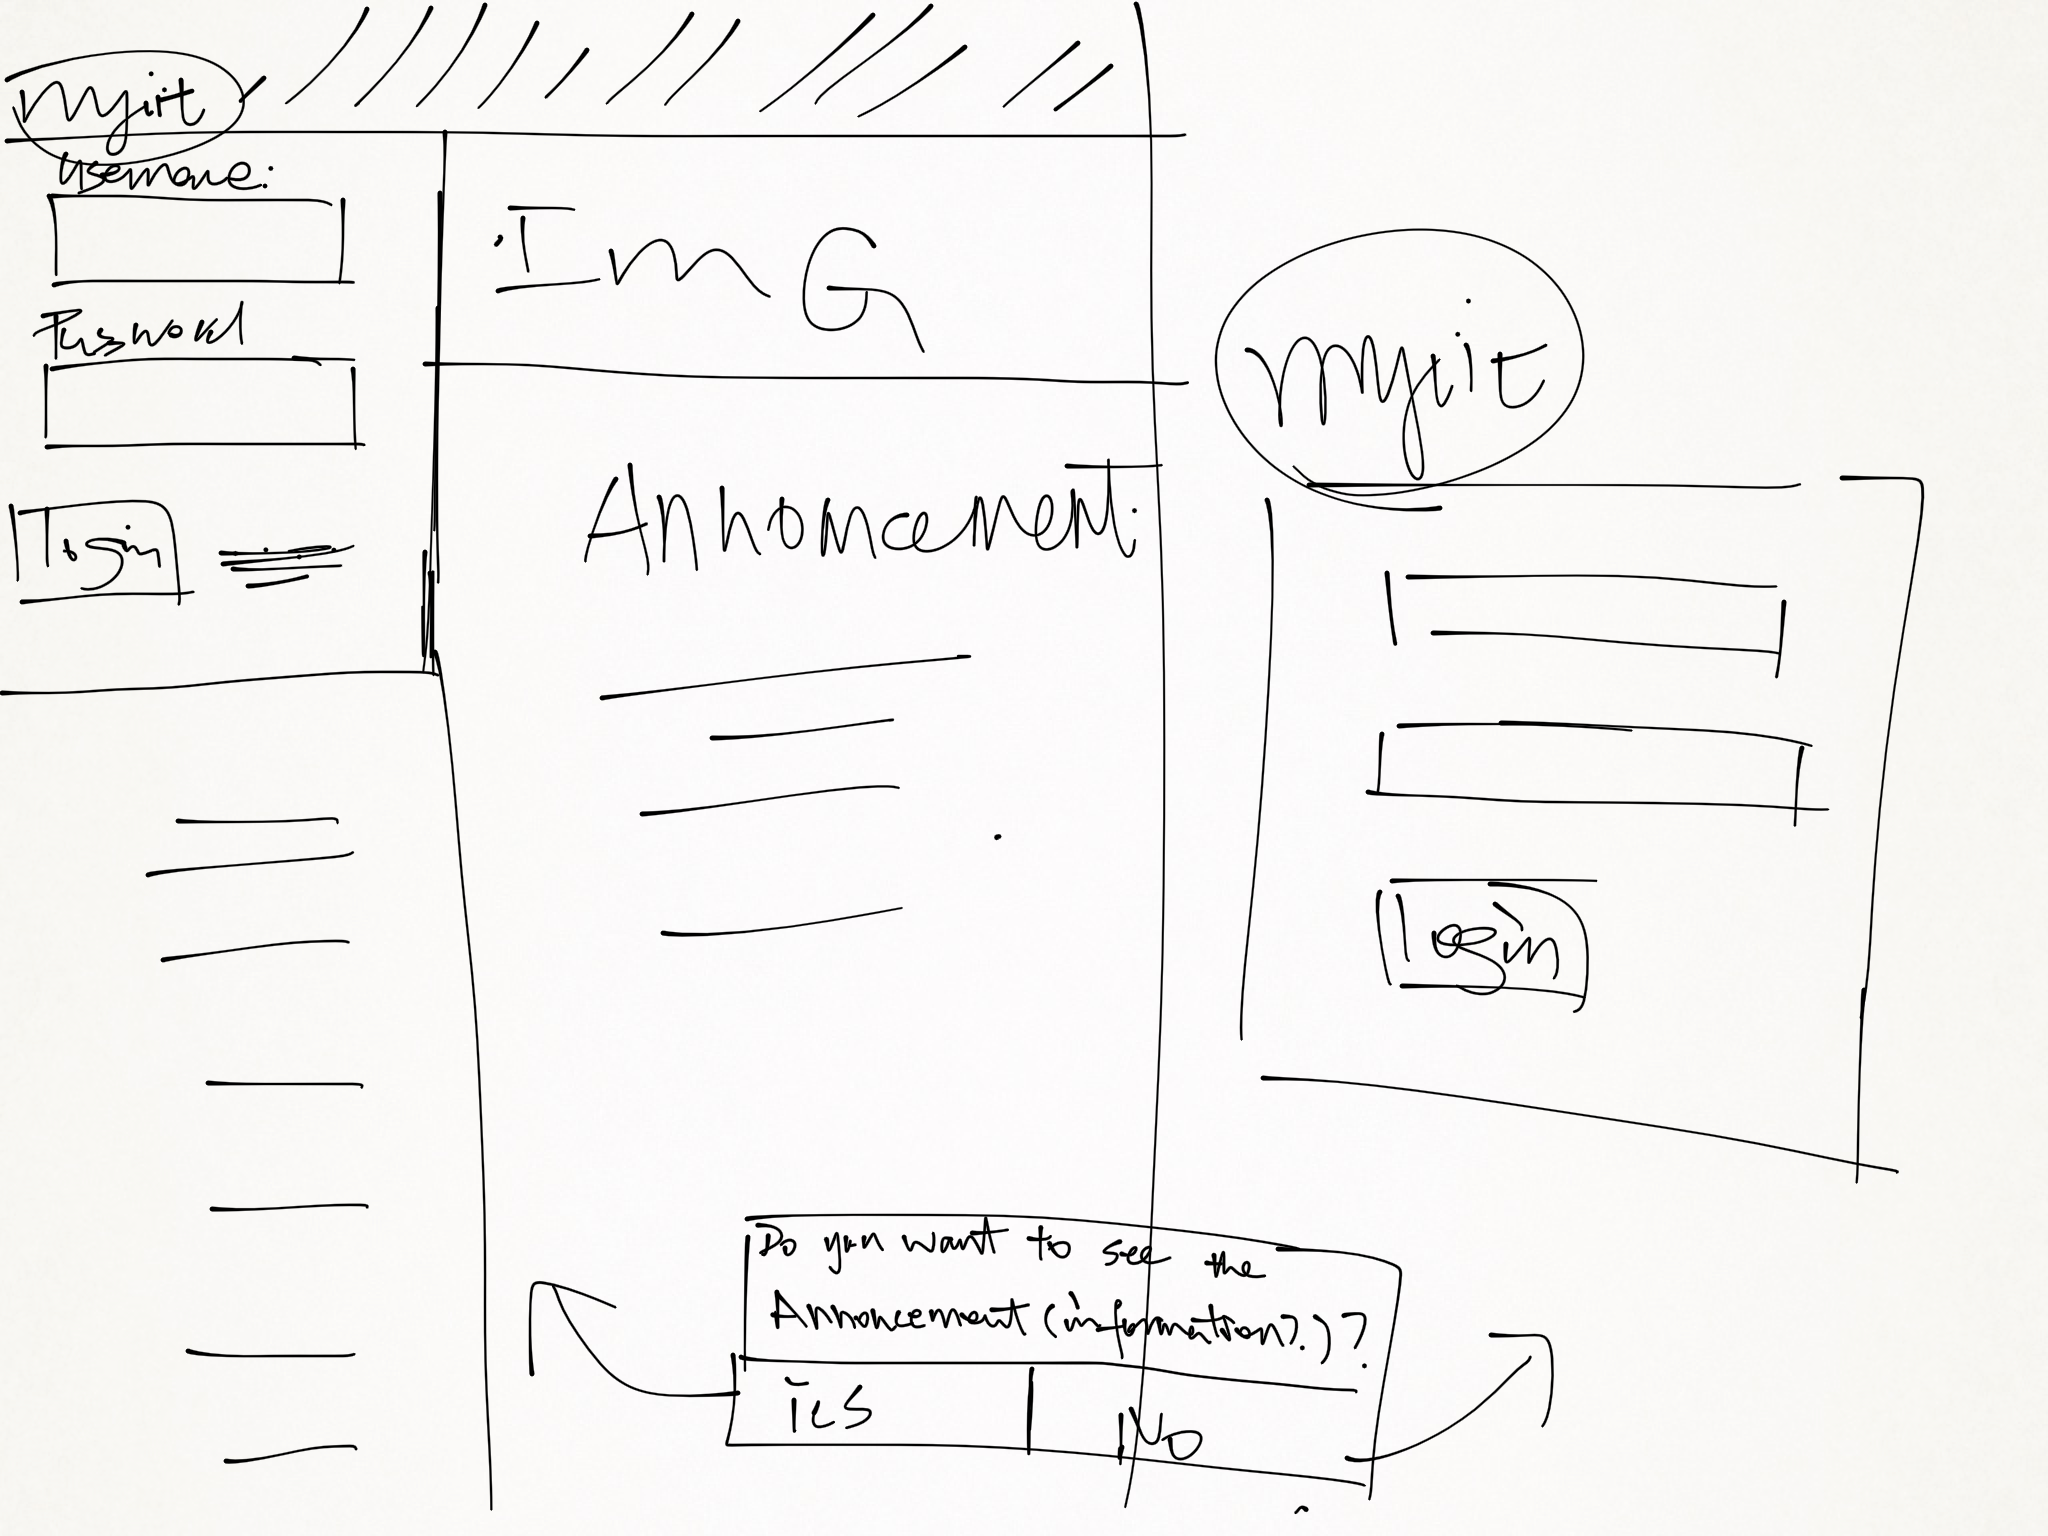 myirt
Username:
Password
login
ImG
Annoncement:
myrit
login
Do you want to see the
Annoncement (information?.)?
Yes
No